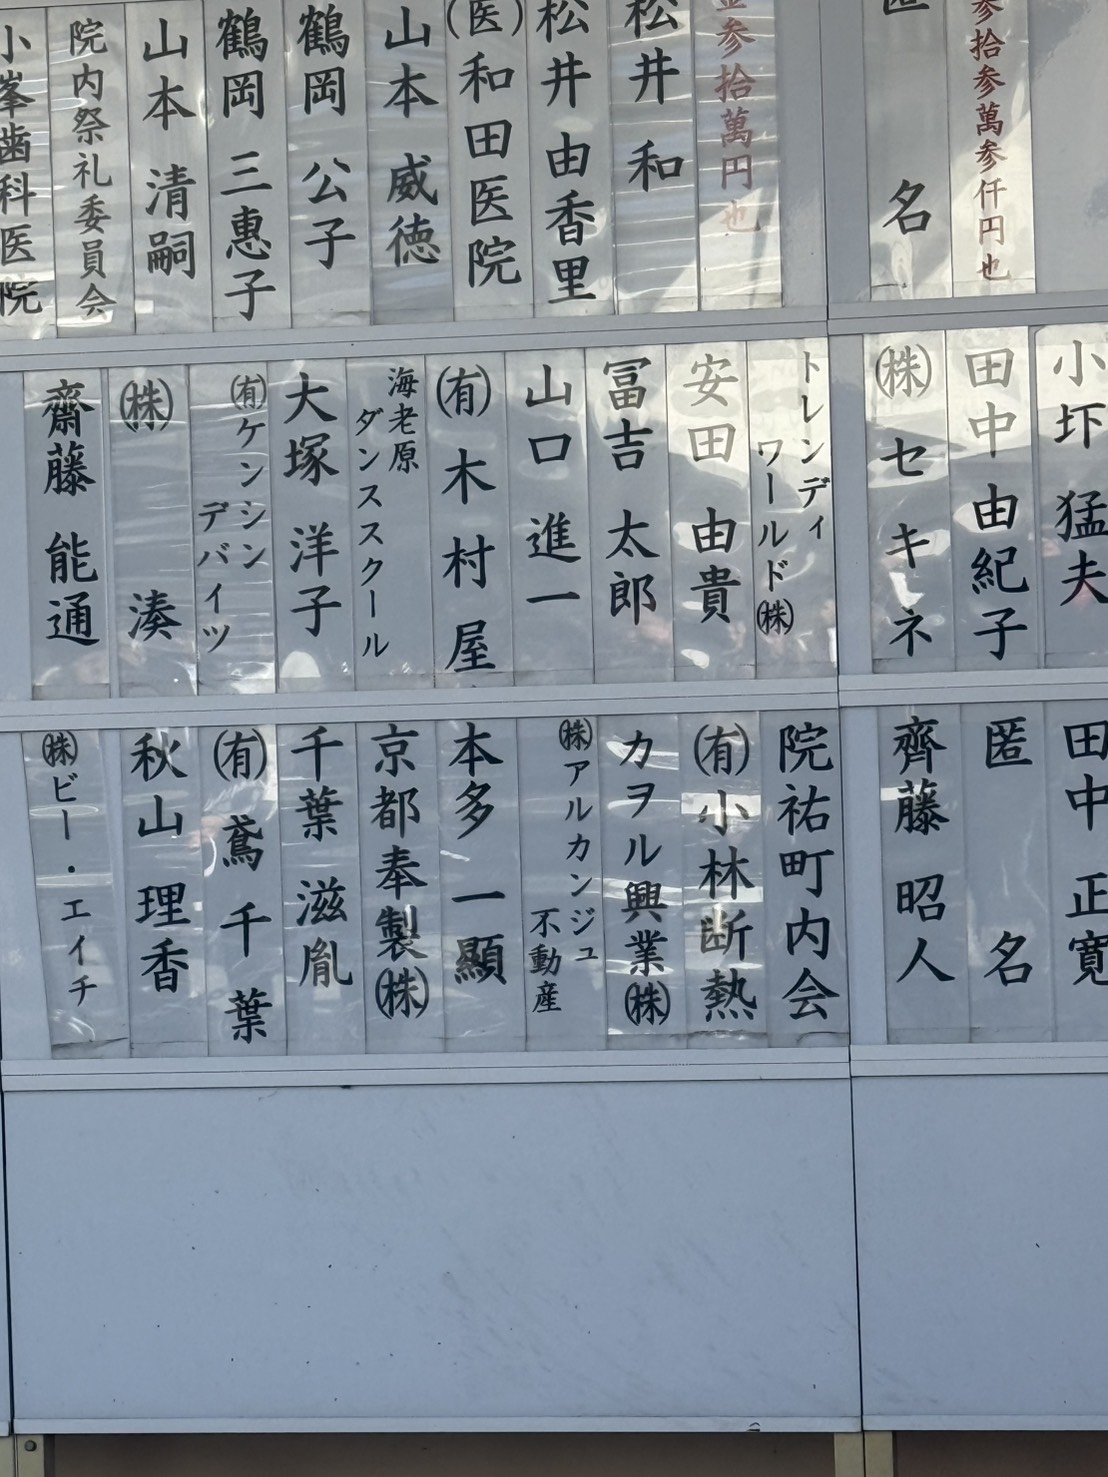 参拾参萬参仟円也
名
小圷 猛夫
田中 由紀子
㈱セキネ
田中 正寛
匿 名
齊藤 昭人
金参拾萬円也
松井 和
松井 由香里
(医)和田医院
山本 威徳
鶴岡 公子
鶴岡 三惠子
山本 清嗣
院内祭礼委員会
小峯歯科医院
トレンディ
ワールド㈱
安田 由貴
冨吉 太郎
山口 進一
㈲木村屋
海老原
ダンススクール
大塚 洋子
㈲ケンシン
デバイツ
㈱ 湊
齋藤 能通
院祐町内会
㈲小林断熱
カヲル興業㈱
㈱アルカンジュ
不動産
本多 一顯
京都奉製㈱
千葉 滋胤
㈲鳶千葉
秋山 理香
㈱ビー・エイチ